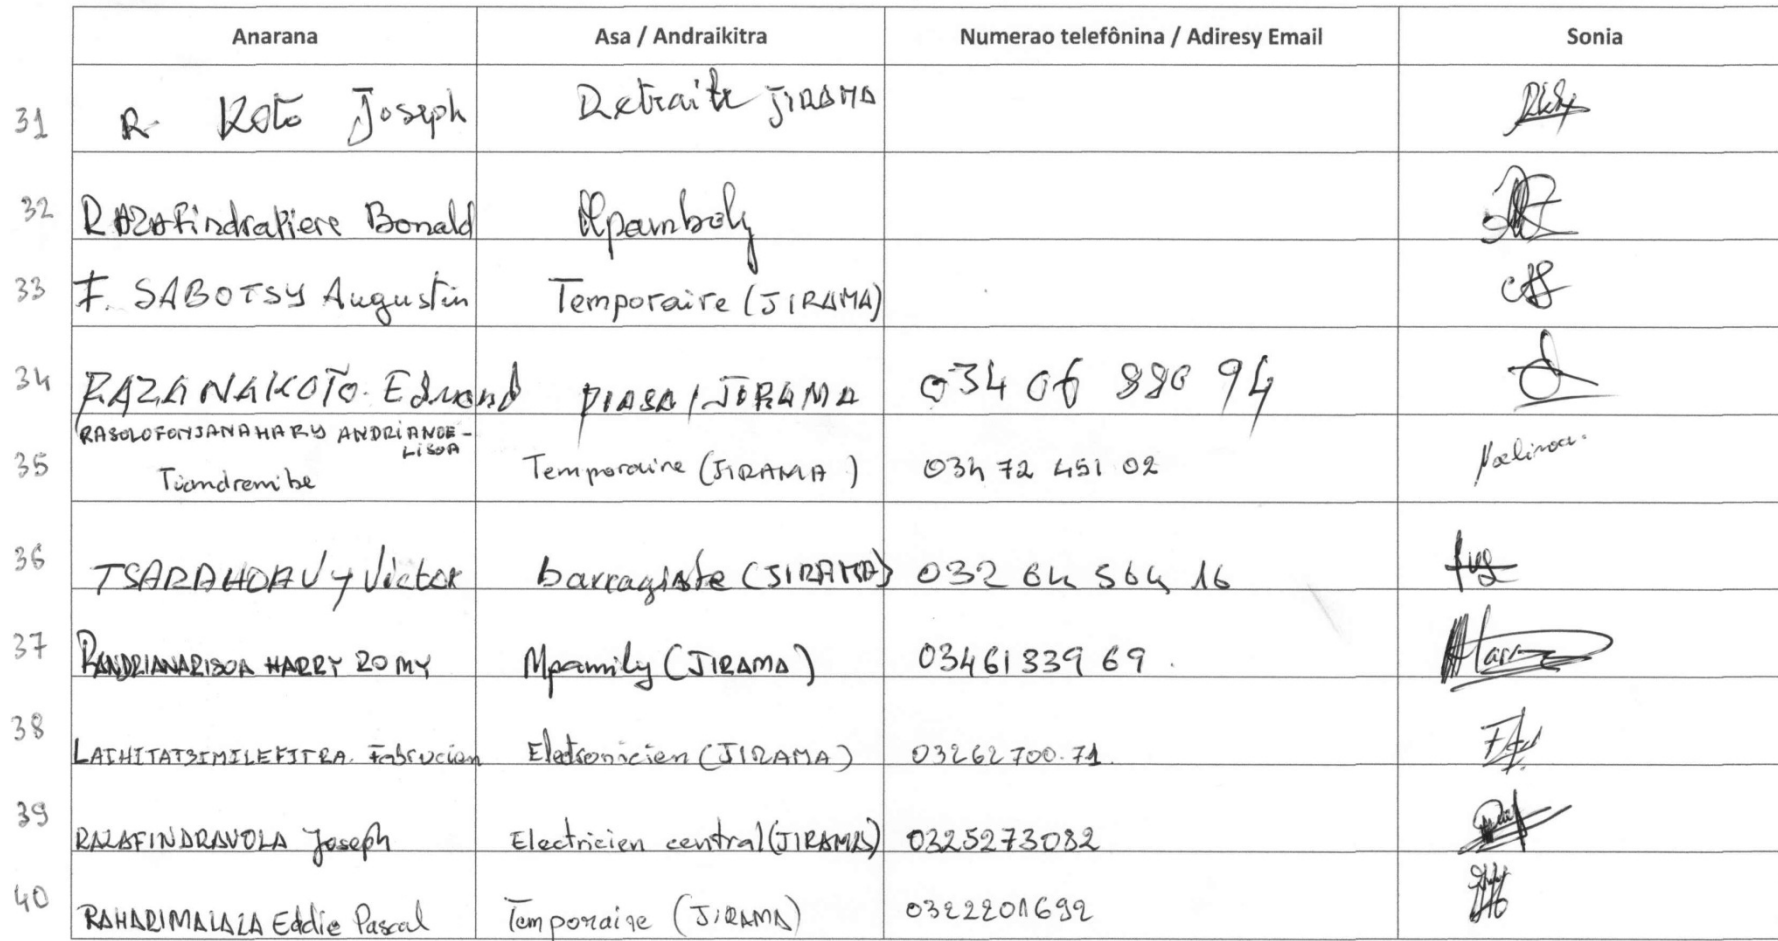 Anarana Asa / Andraikitra Numerao telefônina / Adiresy Email Sonia
31 R KOTO Joseph Retraite JIRAMA
32 RAZAFindrafiere Bonald Mpamboly
33 F. SABOTSY Augustin Temporaire (JIRAMA)
34 RAZANAKOTO. Edmond PIASA / JIRAMA 034 06 880 94
RASOLOFONJANAHARY ANDRIANOE-
LISOA
35 Tiandremibe Temporaire (JIRAMA) 034 72 451 02 Noelisoa
36 TSARAHOAVY Victor barragiste (JIRAMA) 032 64 564 16
37 RANDRIANARISOA HARRY ROMY Mpamily (JIRAMA) 03461339 69. Harr
38 LAIHITATSIMILEFITRA. Fabrucien Eletronicien (JIRAMA) 03262700.71.
39 RAZAFINDRAVOLA Joseph Electricien central (JIRAMA) 0325273082
40 RAHARIMALALA Eddie Pascal Temporaire (JIRAMA) 0322201692